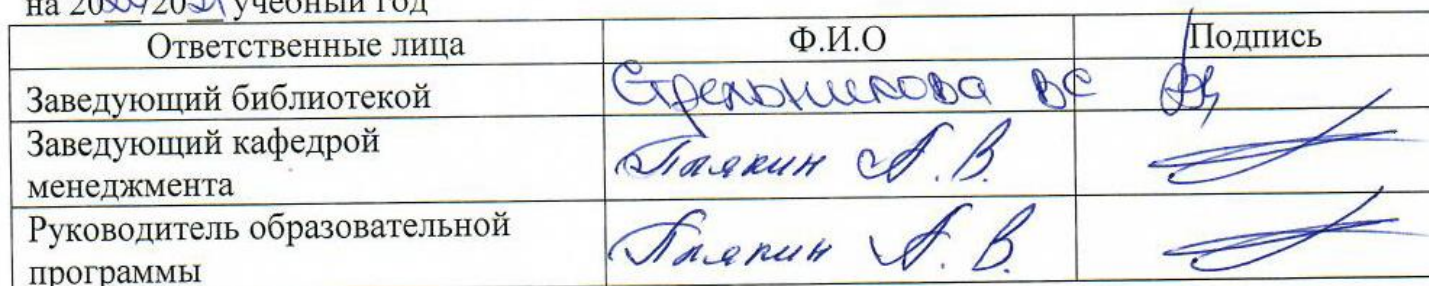 на 2020/2021 учебный год
Ответственные лица Ф.И.О Подпись
Заведующий библиотекой Стрельникова ВС
Заведующий кафедрой
менеджмента А.В.
Руководитель образовательной
программы А.В.